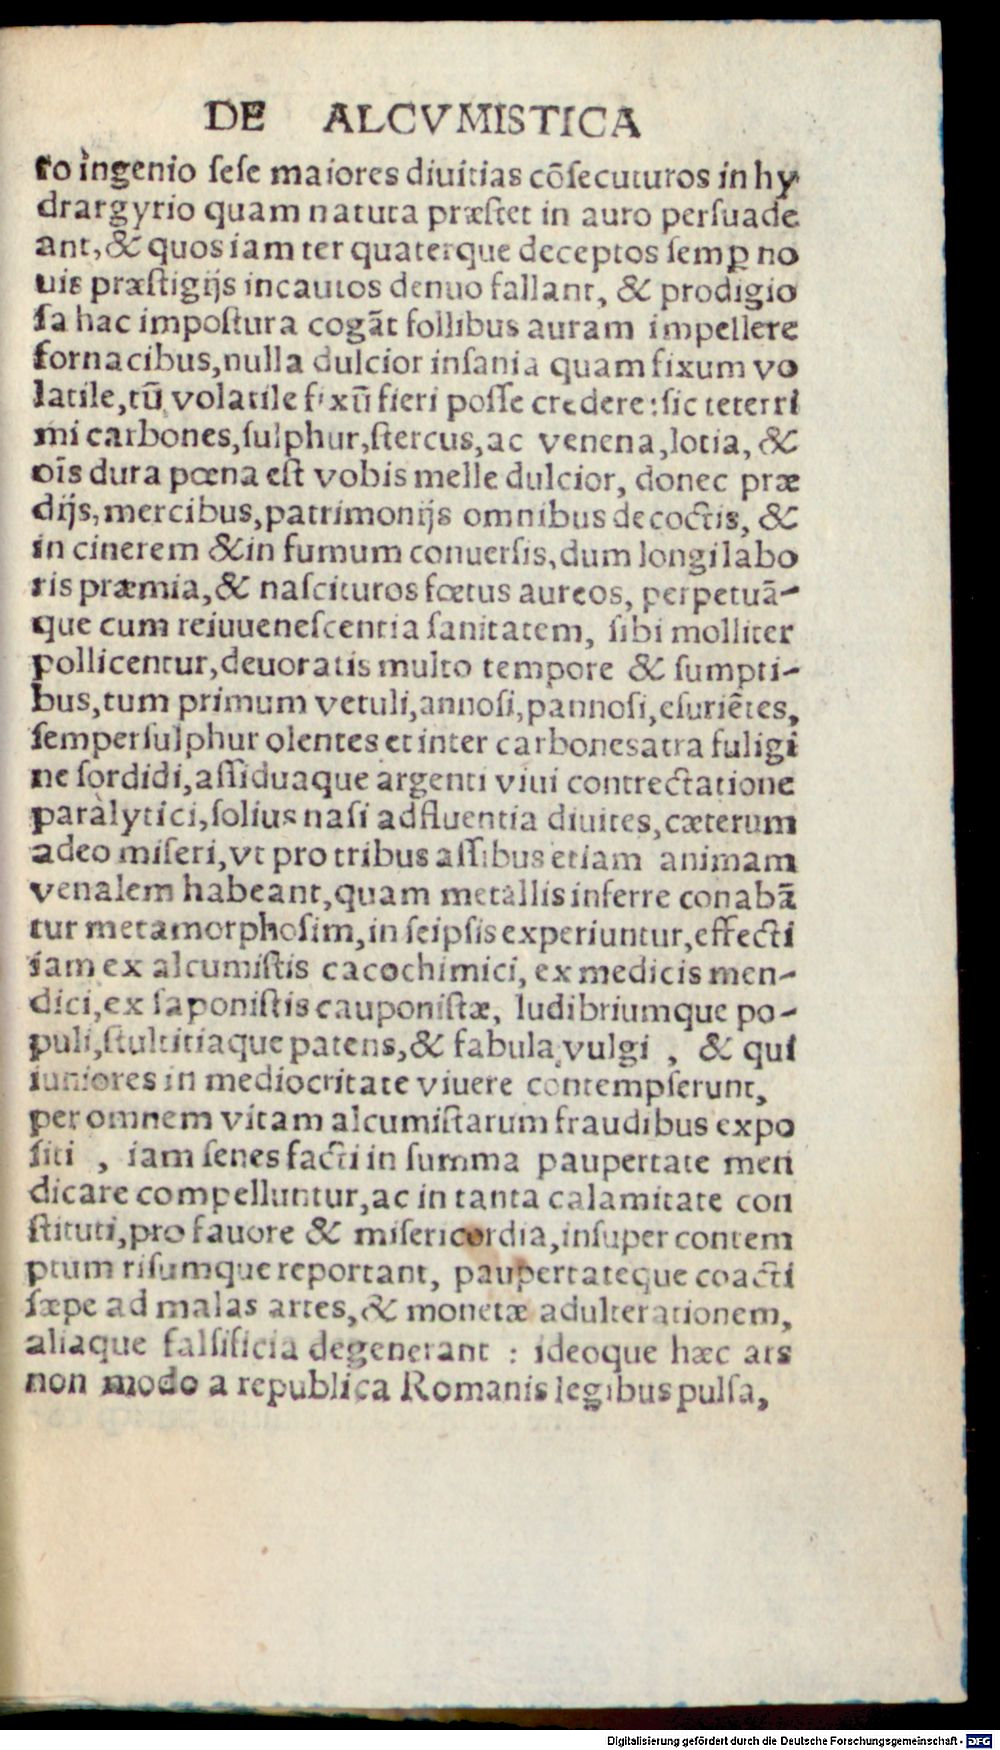 DE ALCVMISTICA
ro ingenio ſeſe maiores diuitias cõſecuturos in hy
drargyrio quam natura præſtet in auro perſuade
ant, & quos iam ter quaterque deceptos ſemꝑ no
uis præſtigijs incautos denuo fallant, & prodigio
ſa hac impoſtura cogãt follibus auram impellere
fornacibus, nulla dulcior inſania quam fixum vo
latile, tũ volatile fixũ fieri poſſe credere: ſic teterri
mi carbones, ſulphur, ſtercus, ac venena, lotia, &
oĩs dura pœna eſt vobis melle dulcior, donec præ
dijs, mercibus, patrimonijs omnibus decoctis, &
in cinerem & in fumum conuerſis, dum longi labo
ris præmia, & naſcituros fœtus aureos, perpetuã-
que cum reiuueneſcentia ſanitatem, ſibi molliter
pollicentur, deuoratis multo tempore & ſumpti-
bus, tum primum vetuli, annoſi, pannoſi, eſuriẽtes,
ſemper ſulphur olentes et inter carbones atra fuligi
ne ſordidi, aſſiduaque argenti viui contrectatione
paralytici, ſolius naſi adfluentia diuites, cæterum
adeo miſeri, vt pro tribus aſſibus etiam animam
venalem habeant, quam metallis inferre conabã
tur metamorphoſim, in ſeipſis experiuntur, effecti
iam ex alcumiſtis cacochimici, ex medicis men-
dici, ex ſaponiſtis cauponiſtæ, ludibriumque po-
puli, ſtultitiaque patens, & fabula vulgi , & qui
iuniores in mediocritate viuere contempſerunt,
per omnem vitam alcumiſtarum fraudibus expo
ſiti , iam ſenes facti in ſumma paupertate men
dicare compelluntur, ac in tanta calamitate con
ſtituti, pro fauore & miſericordia, inſuper contem
ptum riſumque reportant, paupertateque coacti
ſæpe ad malas artes, & monetæ adulterationem,
aliaque falſificia degenerant : ideoque hæc ars
non modo a republica Romanis legibus pulſa,
Digitalisierung gefördert durch die Deutsche Forschungsgemeinschaft - DFG